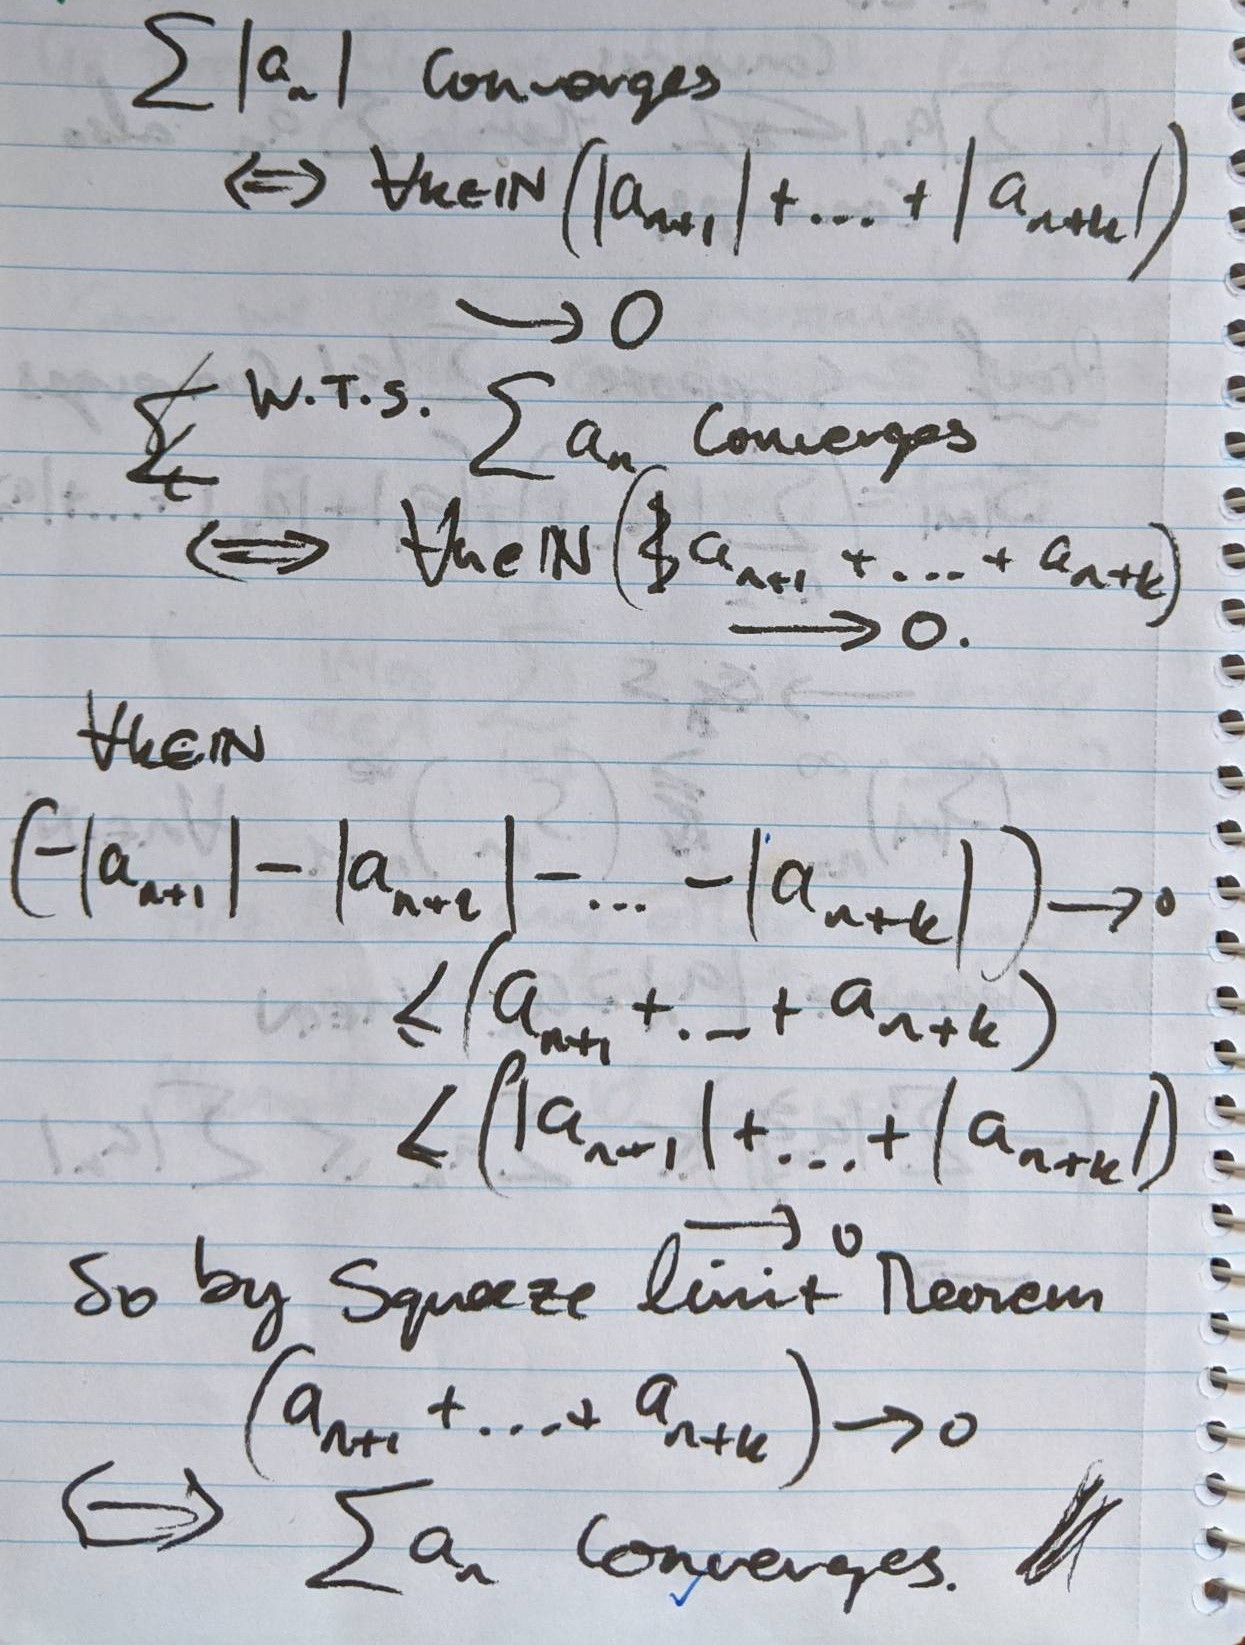 ∑ |aₙ| converges
⇔ ∀k∈ℕ (|aₙ₊₁| + .... + |aₙ₊ₖ|)
→ 0
W.T.S. ∑ aₙ Converges
⇔ ∀k∈ℕ (aₙ₊₁ + .... + aₙ₊ₖ)
→ 0.
∀k∈ℕ
(-|aₙ₊₁| - |aₙ₊₂| - ... - |aₙ₊ₖ|) → 0
≤ (aₙ₊₁ + ... + aₙ₊ₖ)
≤ (|aₙ₊₁| + ... + |aₙ₊ₖ|)
→ 0
So by Squeeze limit Theorem
(aₙ₊₁ + .... + aₙ₊ₖ) → 0
⇔ ∑ aₙ Converges.